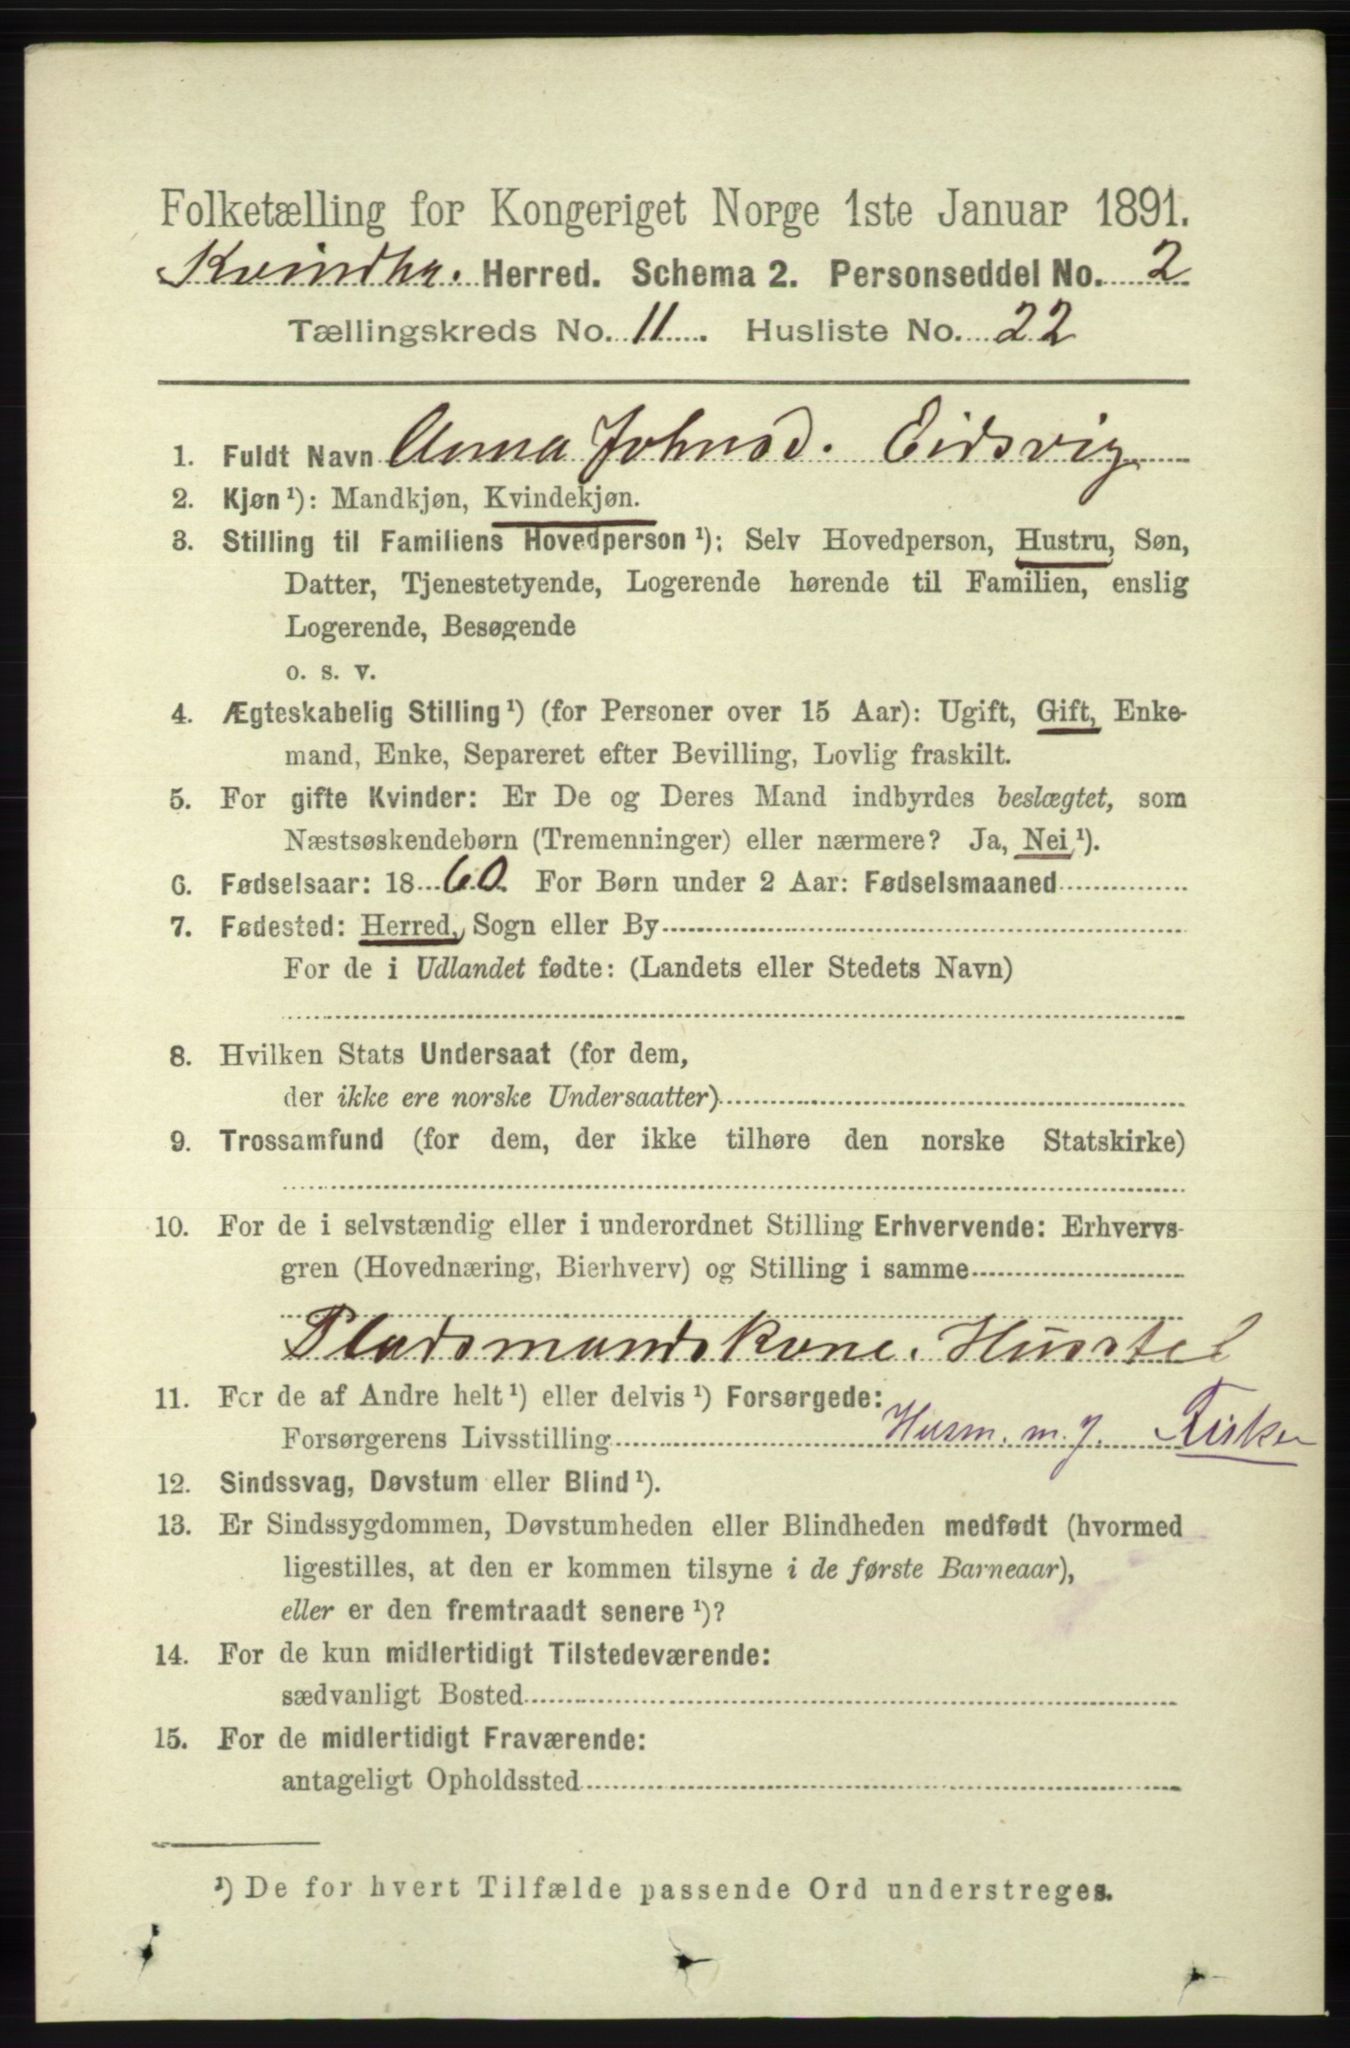 Folketælling for Kongeriget Norge 1ste Januar 1891.
Kvindhr. Herred. Schema 2. Personseddel No. 2
Tællingskreds No. 11. Husliste No. 22
1. Fuldt Navn Anna Johnsd. Eidsvig
2. Kjøn ¹): Mandkjøn, Kvindekjøn.
3. Stilling til Familiens Hovedperson ¹): Selv Hovedperson, Hustru, Søn,
Datter, Tjenestetyende, Logerende hørende til Familien, enslig
Logerende, Besøgende
o. s. v.
4. Ægteskabelig Stilling ¹) (for Personer over 15 Aar): Ugift, Gift, Enke-
mand, Enke, Separeret efter Bevilling, Lovlig fraskilt.
5. For gifte Kvinder: Er De og Deres Mand indbyrdes beslægtet, som
Næstsøskendebørn (Tremenninger) eller nærmere? Ja, Nei ¹).
6. Fødselsaar: 1860. For Børn under 2 Aar: Fødselsmaaned
7. Fødested: Herred, Sogn eller By
For de i Udlandet fødte: (Landets eller Stedets Navn)
8. Hvilken Stats Undersaat (for dem,
der ikke ere norske Undersaatter)
9. Trossamfund (for dem, der ikke tilhøre den norske Statskirke)
10. For de i selvstændig eller i underordnet Stilling Erhvervende: Erhvervs-
gren (Hovednæring, Bierhverv) og Stilling i samme
Pladsmandskone. Husstel
11. For de af Andre helt ¹) eller delvis ¹) Forsørgede:
Forsørgerens Livsstilling Husm. m. j. Fisker
12. Sindssvag, Døvstum eller Blind ¹).
13. Er Sindssygdommen, Døvstumheden eller Blindheden medfødt (hvormed
ligestilles, at den er kommen tilsyne i de første Barneaar),
eller er den fremtraadt senere ¹)?
14. For de kun midlertidigt Tilstedeværende:
sædvanligt Bosted
15. For de midlertidigt Fraværende:
antageligt Opholdssted
¹) De for hvert Tilfælde passende Ord understreges.